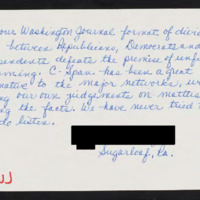 our Washington Journal format of divid
between Republicans, Democrats and
endents defeats the promise of unfi
ming. C-Span has been a great
native to the major networks, us
ng our own judgements on matters
ng the facts. We have never tried t
do listen.
Sugarloaf, Pa.